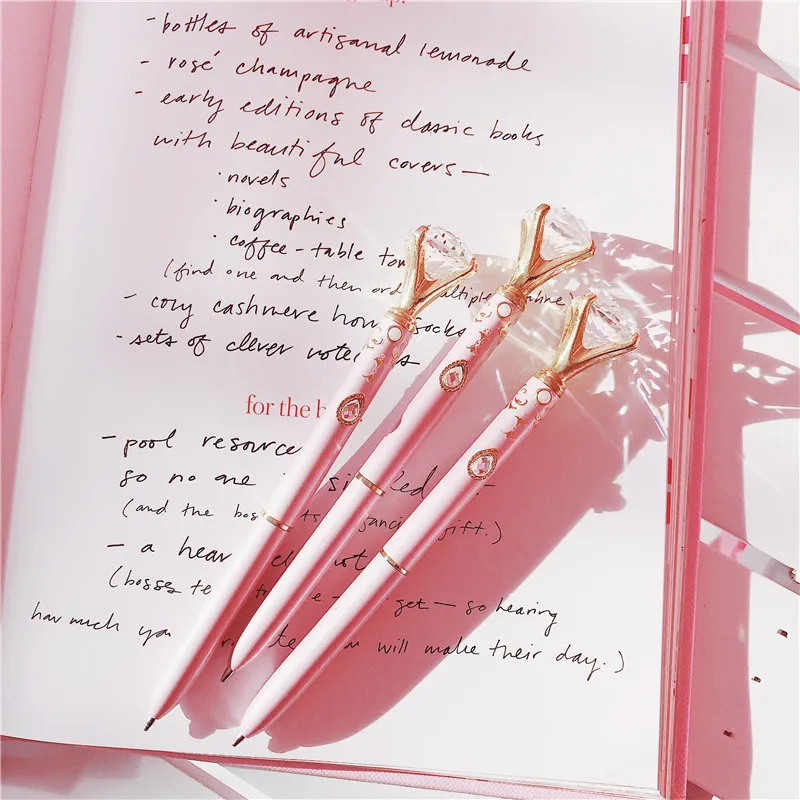 - bottles of artisanal lemonade
- rosé champagne
- early editions of classic books
with beautiful covers—
· novels
· biographies
· coffee-table
(find one and then
- cozy cashmere socks
- sets of clever
for the
- pool
so no one
(and the gift.)
- a
(bosses get — so hearing
how much you will make their day.)